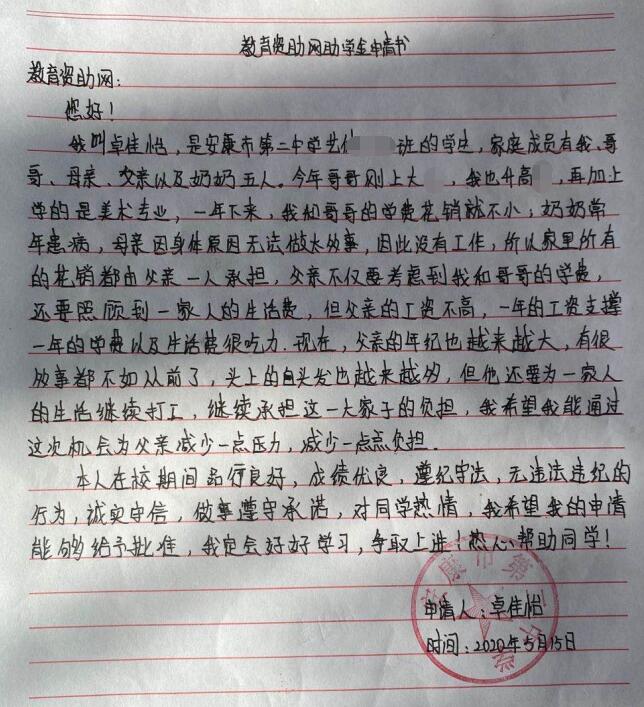 教育资助网助学金申请书
教育资助网：
您好！
我叫卓佳怡，是安康市第二中学艺体班的学生，家庭成员有我、哥
哥、母亲、父亲以及奶奶五人。今年哥哥刚上大，我也升高，再加上
学的是美术专业，一年下来，我和哥哥的学费花销就不小；奶奶常
年患病，母亲因身体原因无法做太多事，因此没有工作，所以家里所有
的花销都由父亲一人承担，父亲不仅要考虑到我和哥哥的学费，
还要照顾到一家人的生活费，但父亲的工资不高，一年的工资支撑
一年的学费以及生活费很吃力。现在，父亲的年纪也越来越大，有很
多事都不如从前了，头上的白头发也越来越多，但他还要为一家人
的生活继续打工，继续承担这一大家子的负担，我希望我能通过
这次机会为父亲减少一点压力，减少一点点负担。
本人在校期间品行良好，成绩优良，遵纪守法，无违法违纪的
行为，诚实守信，做事遵守承诺，对同学热情，我希望我的申请
能够给予批准，我定会好好学习，争取上进；热心帮助同学！
申请人：卓佳怡
时间：2020年5月15日